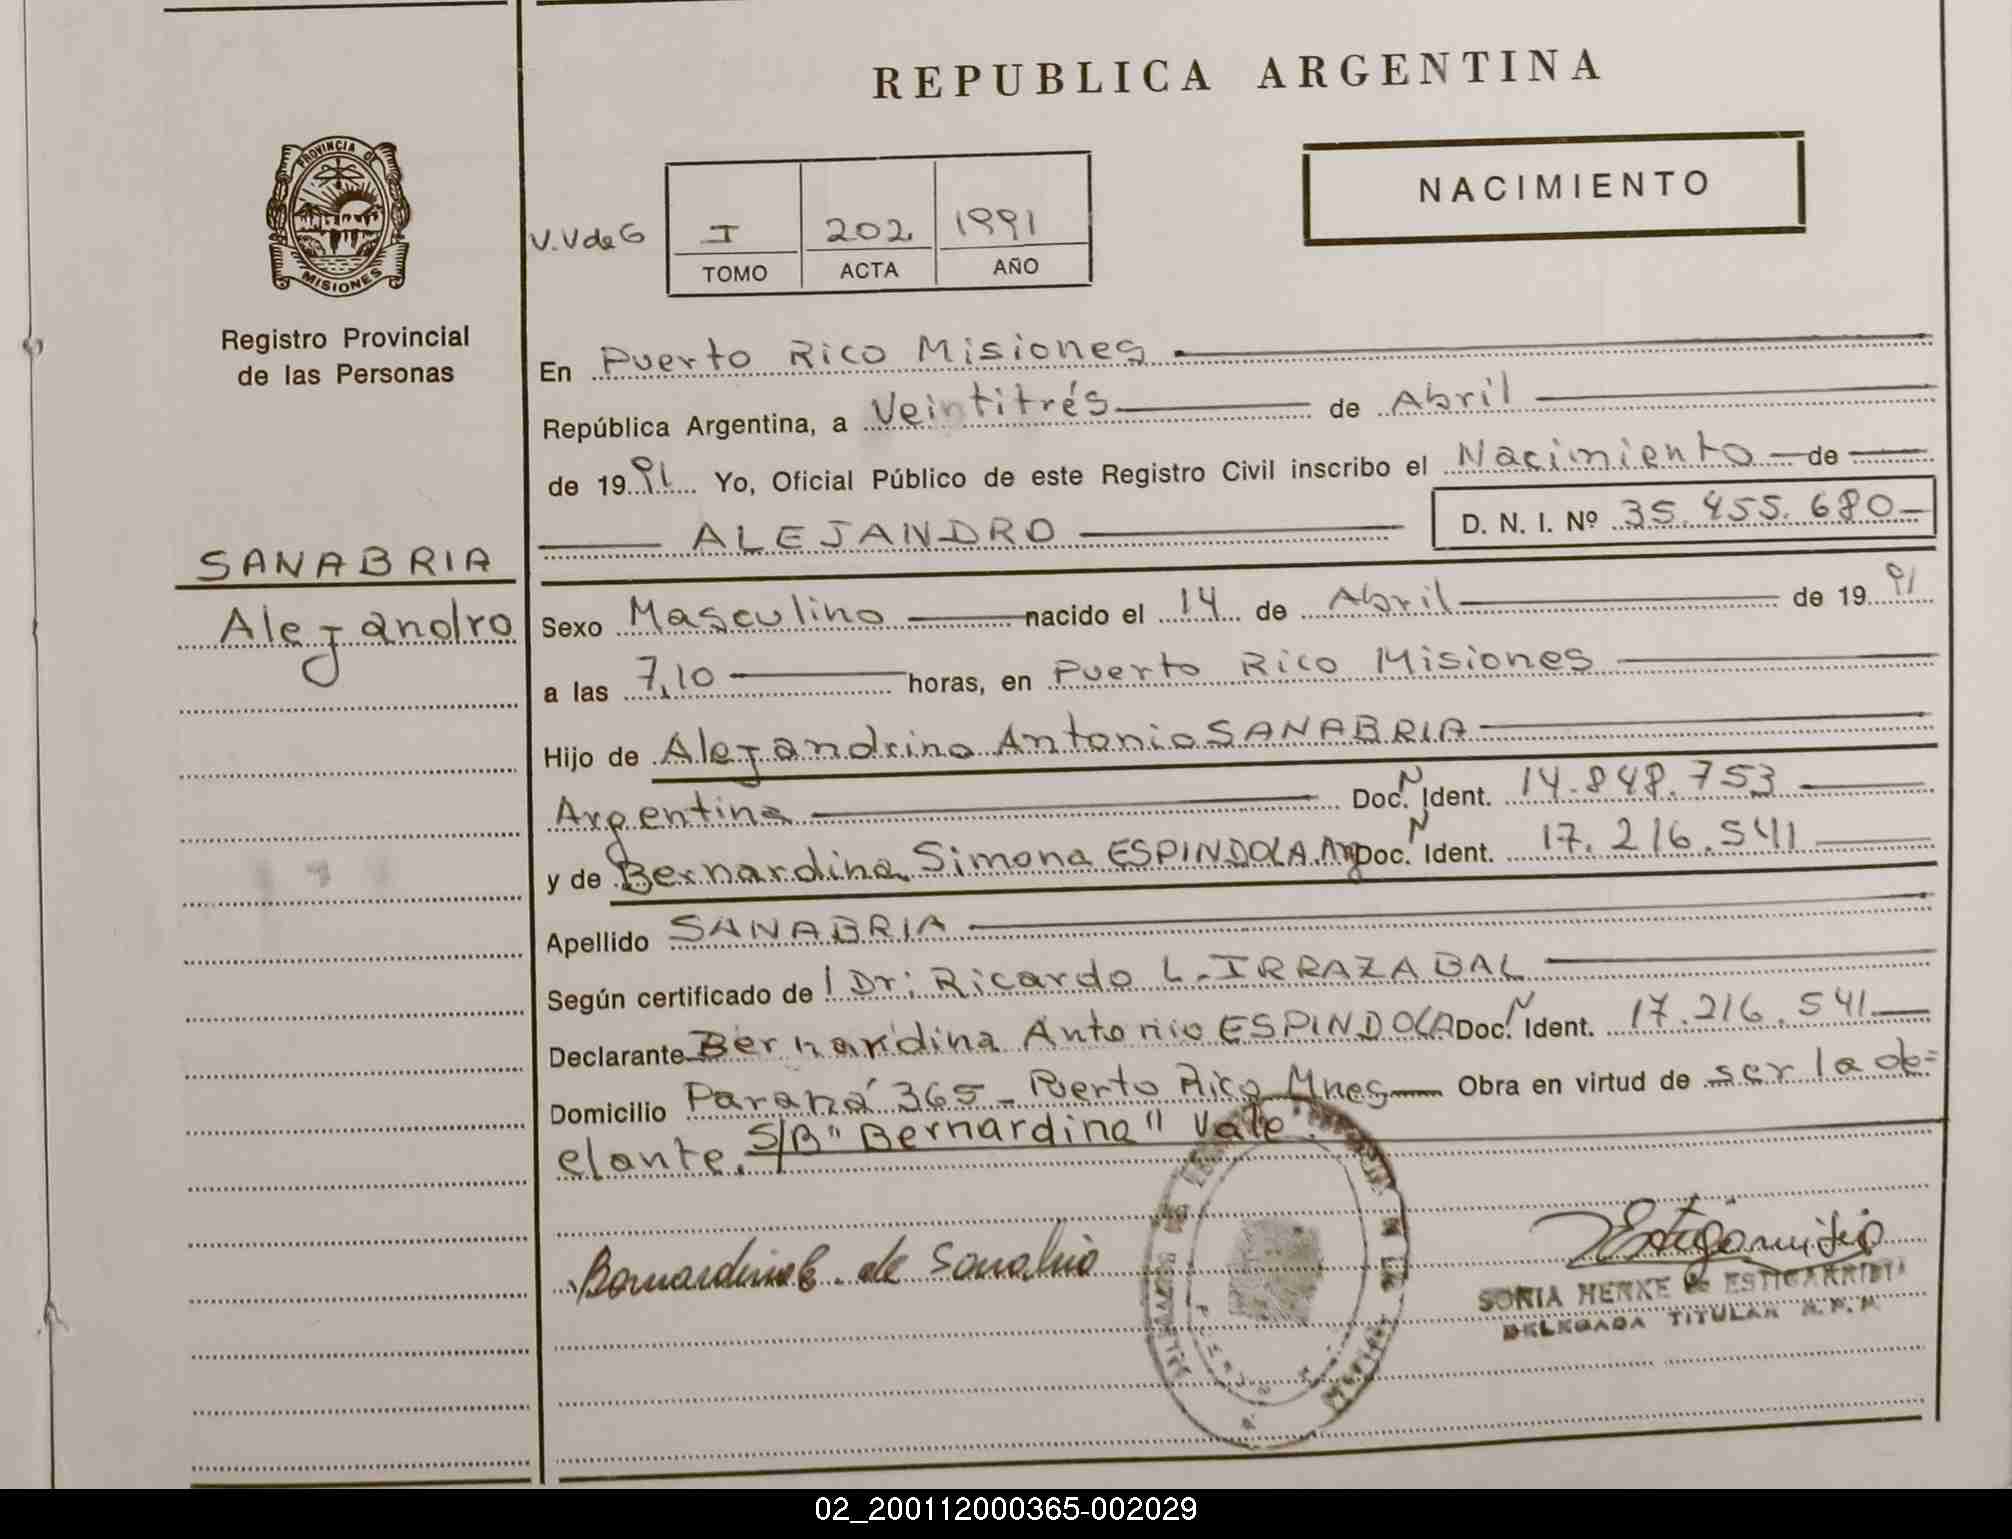 REPUBLICA ARGENTINA
PROVINCIA DE
MISIONES
Registro Provincial
de las Personas
V.V de G
I 202 1991
TOMO ACTA AÑO
NACIMIENTO
SANABRIA
Alejandro
En Puerto Rico Misiones
República Argentina, a Veintitrés de Abril
de 1991 Yo, Oficial Público de este Registro Civil inscribo el Nacimiento de
ALEJANDRO D. N. I. Nº 35.455.680
Sexo Masculino nacido el 14 de Abril de 1991
a las 7,10 horas, en Puerto Rico Misiones
Hijo de Alejandrino Antonio SANABRIA
Argentina Doc. N Ident. 14.848.753
y de Bernardina Simona ESPINDOLA Arg Doc. N Ident. 17.216.541
Apellido SANABRIA
Según certificado de l Dr: Ricardo L. IRRAZABAL
Declarante Bernardina Antonio ESPINDOLA Doc. N Ident. 17.216.541
Domicilio Paraná 365 - Puerto Rico Mnes Obra en virtud de ser la de=
clante. S/B "Bernardina" Vale
Bernardina E. de Sanabria
SONIA HENKE de ESTIGARRIBIA
DELEGADA TITULAR R. P. P.
02_200112000365-002029